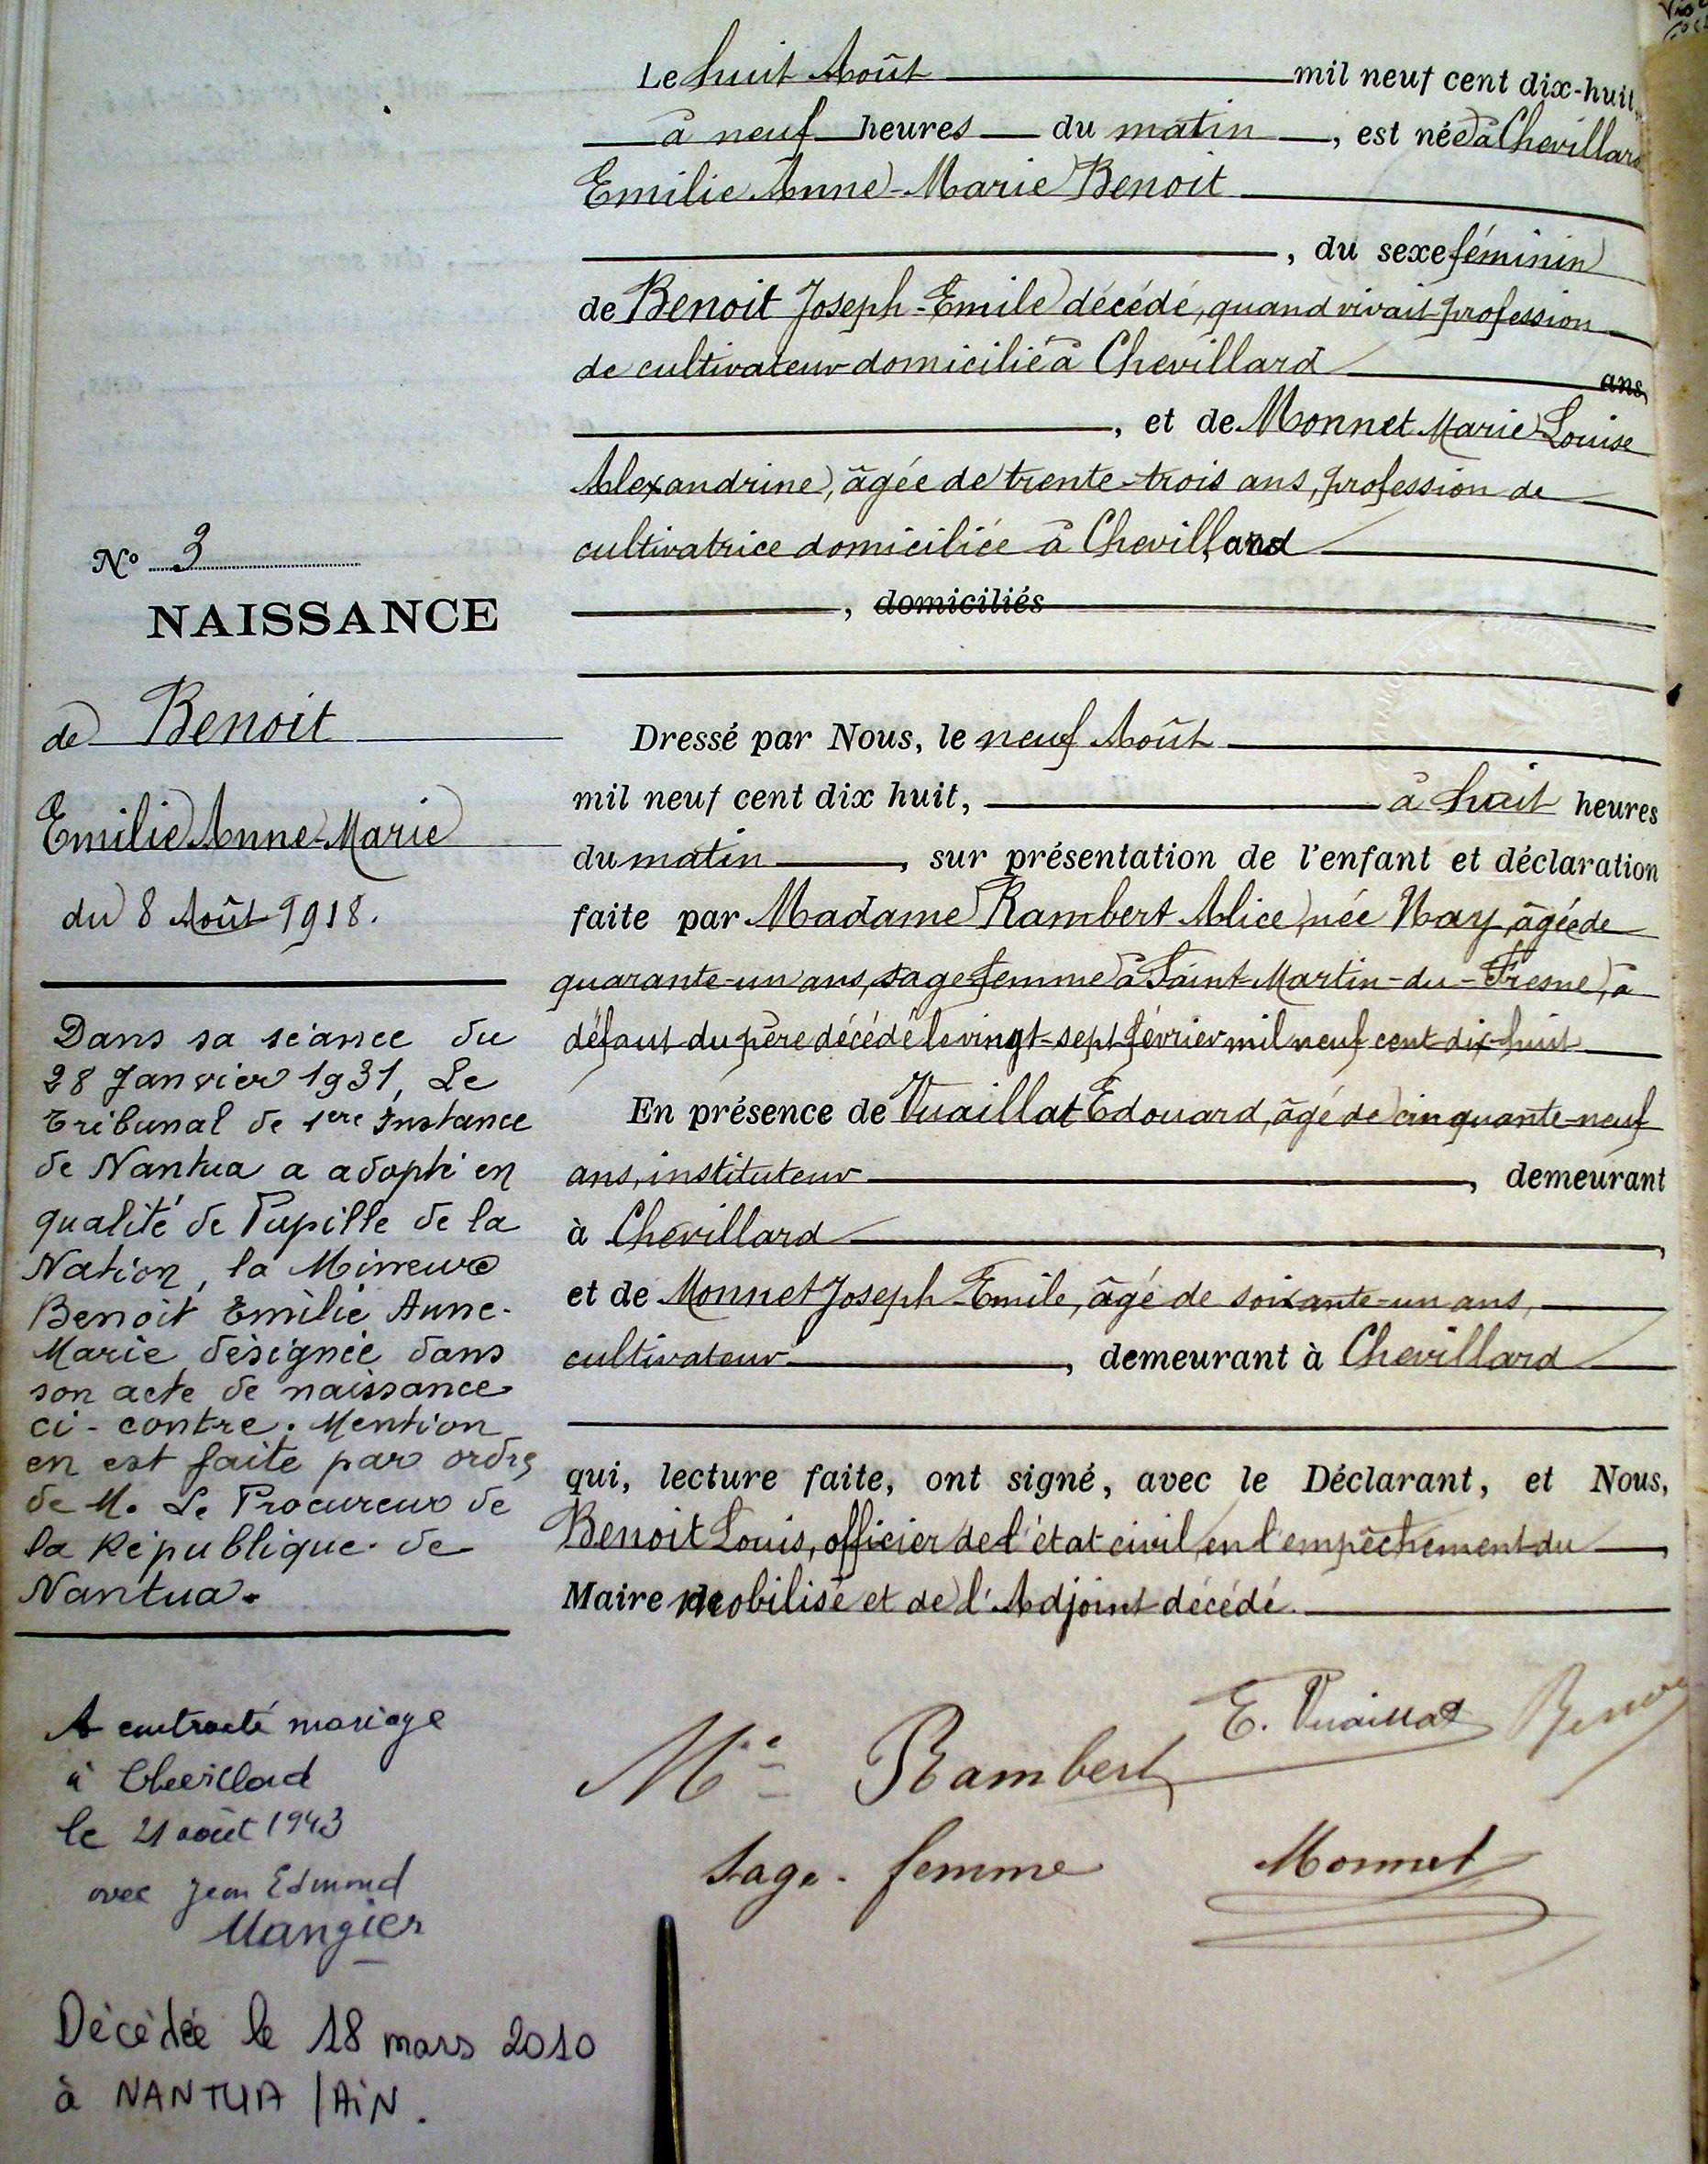 Le huit Août mil neuf cent dix-huit,
à neuf heures du matin, est née à Chevillard
Emilie Anne-Marie Benoit
, du sexe féminin
de Benoit Joseph-Emile décédé, quand vivait profession
de cultivateur domicilié à Chevillard ans
, et de Monnet Marie Louise
Alexandrine, âgée de trente-trois ans, profession de
cultivatrice domiciliée à Chevillard
, domiciliés
Dressé par Nous, le neuf Août
mil neuf cent dix huit, à huit heures
du matin, sur présentation de l'enfant et déclaration
faite par Madame Rambert Alice, née Nay, âgée de
quarante-un ans, sage femme à Saint-Martin-du-Fresne, à
défaut du père décédé le vingt-sept février mil neuf cent dix-huit
En présence de Vuaillat Edouard, âgé de cinquante-neuf
ans, instituteur, demeurant
à Chevillard,
et de Monnet Joseph-Emile, âgé de soixante-un ans,
cultivateur, demeurant à Chevillard
qui, lecture faite, ont signé, avec le Déclarant, et Nous,
Benoit Louis, officier de l'état civil, en l'empêchement du
Maire mobilisé et de l'Adjoint décédé.
E. Vuaillat
Mme Rambert
sage-femme
Monnet
No 3
NAISSANCE
de Benoit
Emilie Anne-Marie
du 8 Août 1918.
Dans sa séance du
28 Janvier 1931, Le
Tribunal de 1ere Instance
de Nantua a adopté en
qualité de Pupille de la
Nation, la Mineure
Benoit Emilie Anne-
Marie désignée dans
son acte de naissance
ci-contre. Mention
en est faite par ordre
de M. Le Procureur de
la République de
Nantua.
A contracté mariage
à Chevillard
le 21 août 1943
avec Jean Edmond
Mangier
Décédée le 18 mars 2010
à NANTUA /AiN.